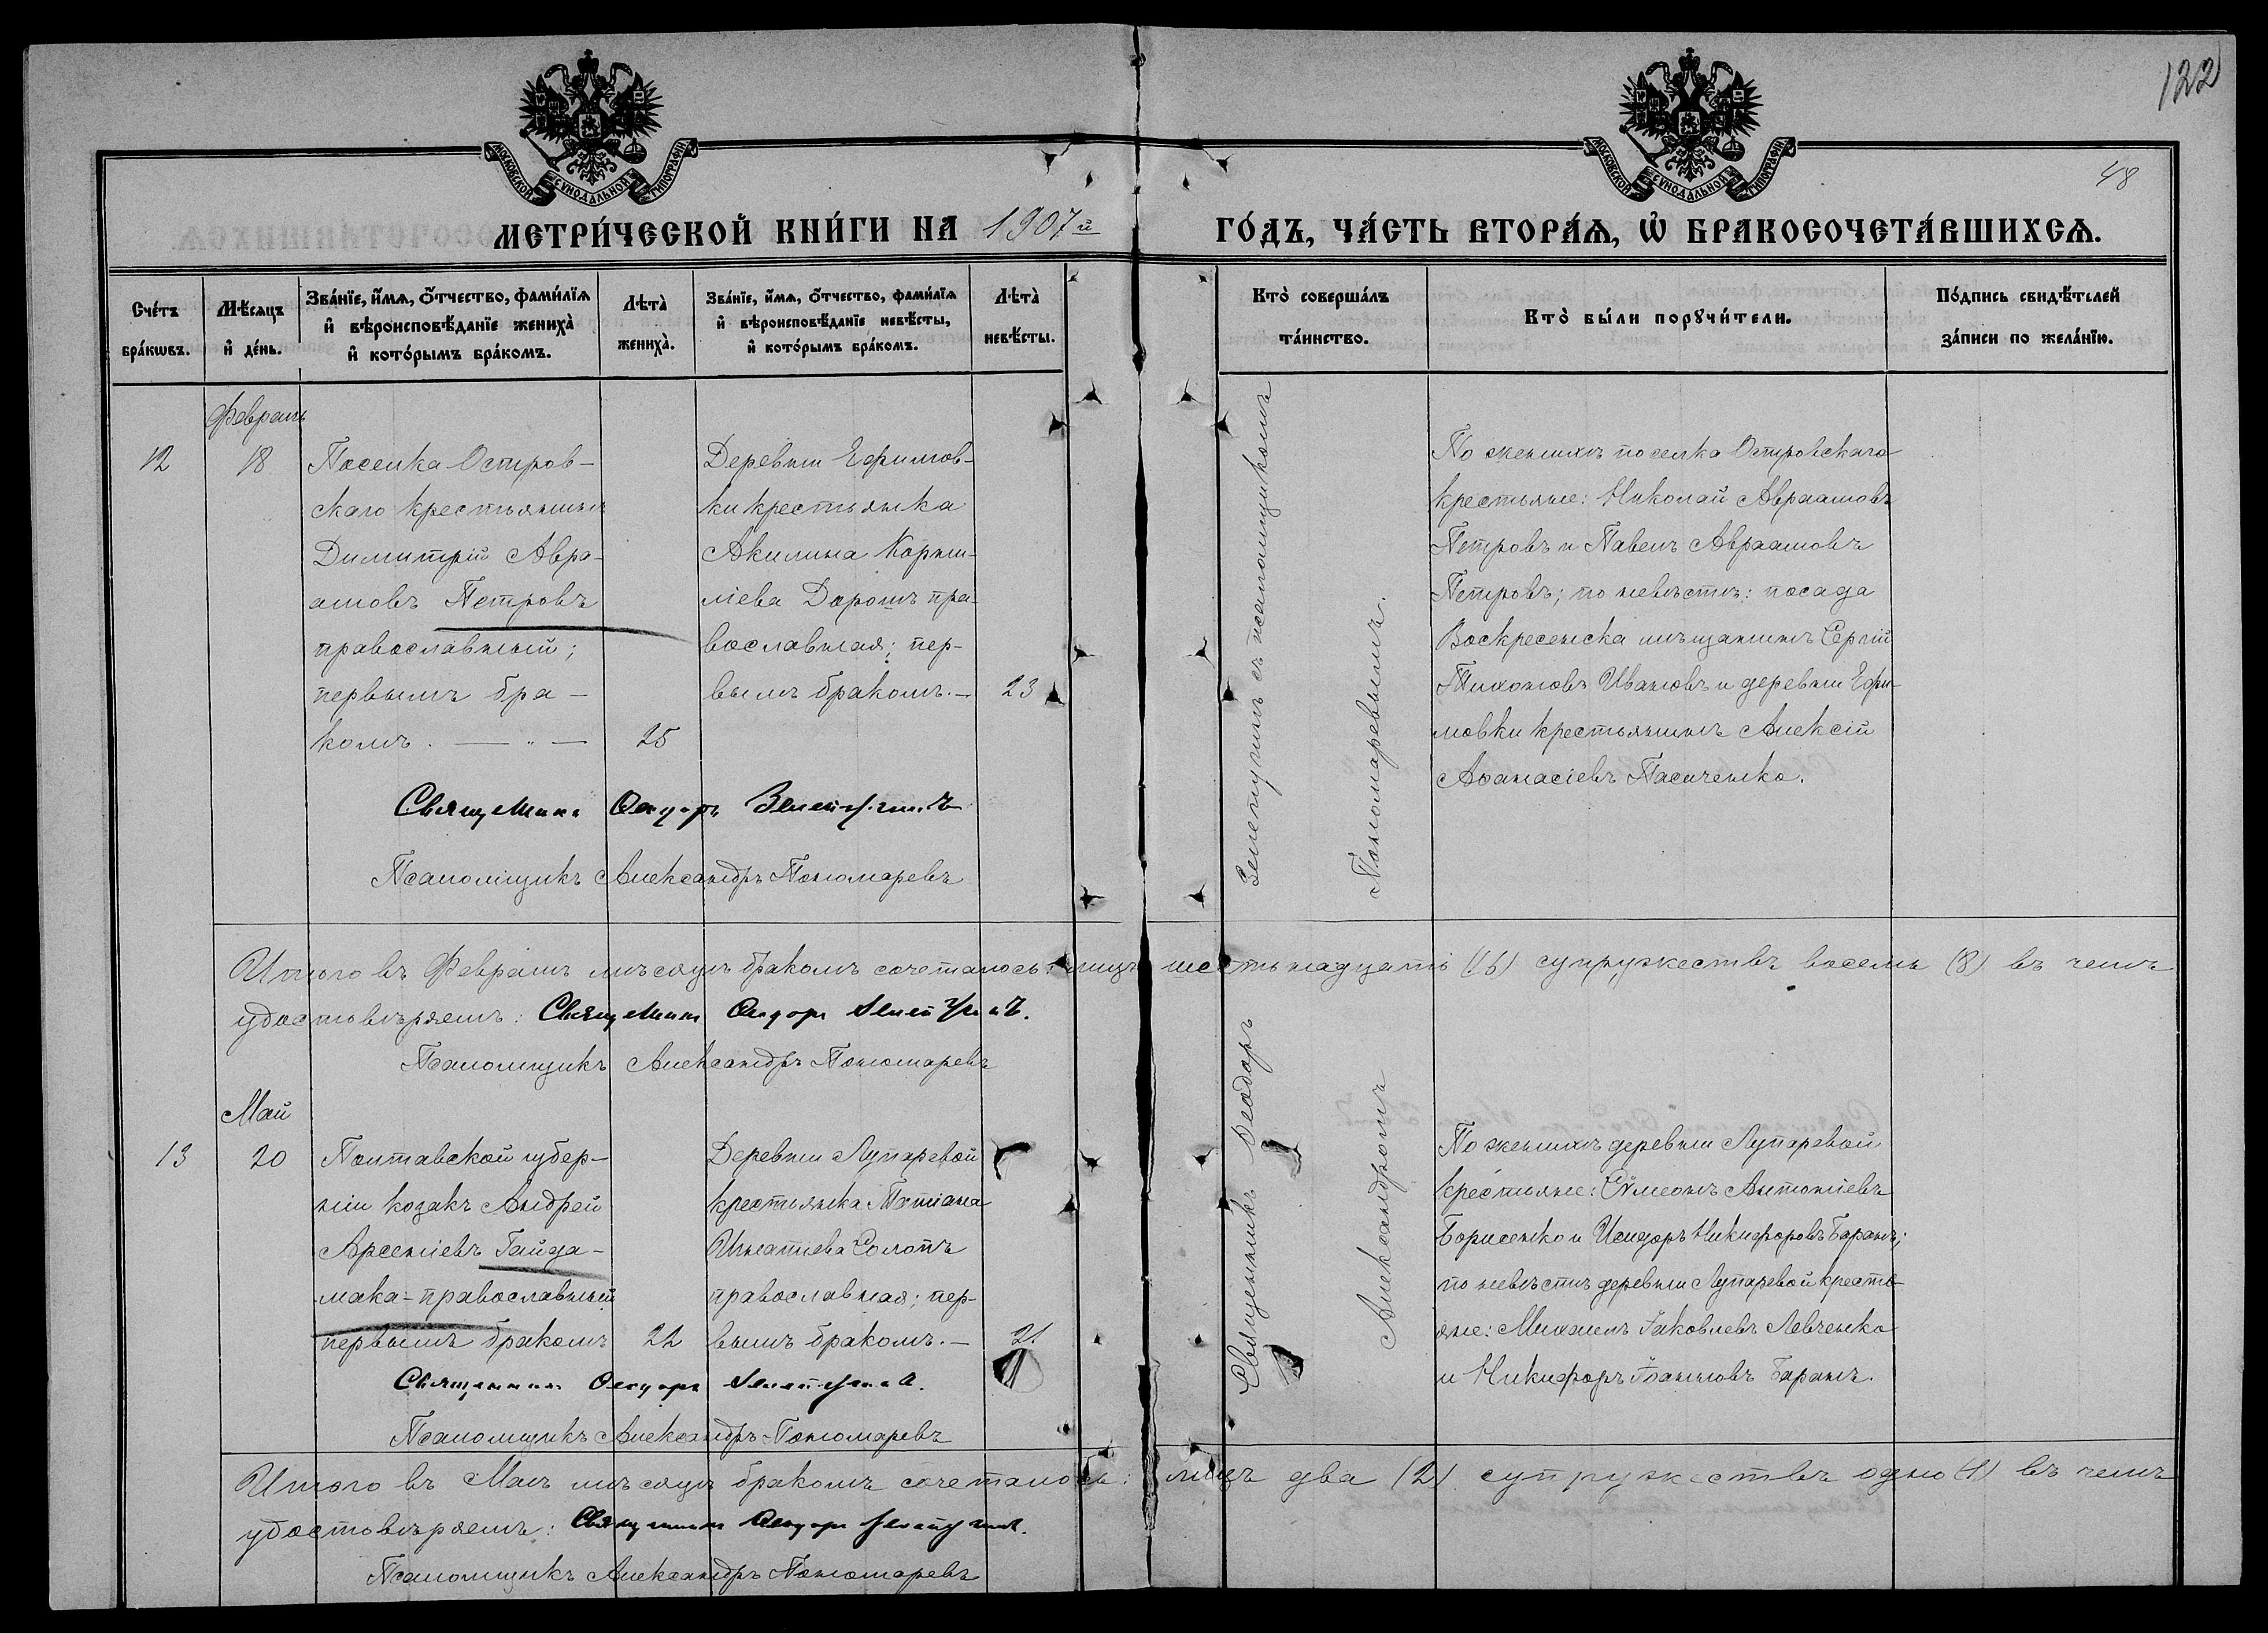 122
48
МОСКОВСКОЙ СѴНОДАЛЬНОЙ ТИПОГРАФІИ
МОСКОВСКОЙ СѴНОДАЛЬНОЙ ТИПОГРАФІИ
МЕТРИ́ЧЕСКОЙ КНИ́ГИ НА 1907й ГО́ДЪ, ЧА́СТЬ ВТОРА́Ѧ, Ѽ БРАКОСОЧЕТА́ВШИХСѦ.
Сче́тъ бра́кѡвъ.
Мѣ́сѧцъ и҆ де́нь.
Зва́нїе, и҆́мѧ, о҆́тчество, фами́лїѧ и҆ вѣроисповѣ́данїе жениха̀ и҆ кото́рымъ бра́комъ.
Лѣта̀ жениха̀.
Зва́нїе, и҆́мѧ, о҆́тчество, фами́лїѧ и҆ вѣроисповѣ́данїе невѣ́сты, и҆ кото́рымъ бра́комъ.
Лѣта̀ невѣ́сты.
Кто̀ соверша́лъ та́инство.
Кто̀ бы́ли порꙋчи́тели.
По́дпись свидѣ́телей за́писи по жела́нїю.
Февраль
12
18
Поселка Остров-
скаго крестьянинъ
Димитрій Авра-
амовъ Петровъ
православный;
первымъ бра-
комъ. — „ —
25
Деревни Ефимов-
ки крестьянка
Акилина Корни-
ліева Дорошъ пра-
вославная; пер-
вымъ бракомъ. —
23
Священникъ Ѳеодоръ
Псаломщикъ Александръ Пономаревъ
Священникъ Ѳеодоръ
съ псаломщикомъ
Александромъ Пономаревымъ.
По женихѣ поселка Островскаго
крестьяне: Николай Авраамовъ
Петровъ и Павелъ Авраамовъ
Петровъ; по невѣстѣ: посада
Воскресенска мѣщанинъ Сергій
Тихоновъ Ивановъ и деревни Ефи-
мовки крестьянинъ Алексій
Аѳанасіевъ Пасиченко.
Итого въ Февралѣ мѣсяцѣ бракомъ сочеталось: лицъ шестьнадцать (16) супружествъ восемь (8) въ чемъ
удостовѣряемъ: Священникъ Ѳеодоръ
Псаломщикъ Александръ Пономаревъ
Май
13
20
Полтавской губер-
ніи козакъ Андрей
Арсеніевъ Гайда-
мака - православный
первымъ бракомъ
22
Деревни Лупаревой
крестьянка Татіана
Игнатіева Солопъ
православная; пер-
вымъ бракомъ. —
21
Священникъ Ѳеодоръ
Псаломщикъ Александръ Пономаревъ
По женихѣ деревни Лупаревой
крестьяне: Сѵмеонъ Антоніевъ
Борисенко и Исидоръ Никифоровъ Баранъ;
по невѣстѣ деревни Лупаревой кресть-
яне: Михаилъ Іаковлевъ Левченко
и Никифоръ Іоанновъ Баранъ.
Итого въ Маѣ мѣсяцѣ бракомъ сочеталось: лицъ два (2) супружествъ одно (1) въ чемъ
удостовѣряемъ: Священникъ Ѳеодоръ
Псаломщикъ Александръ Пономаревъ